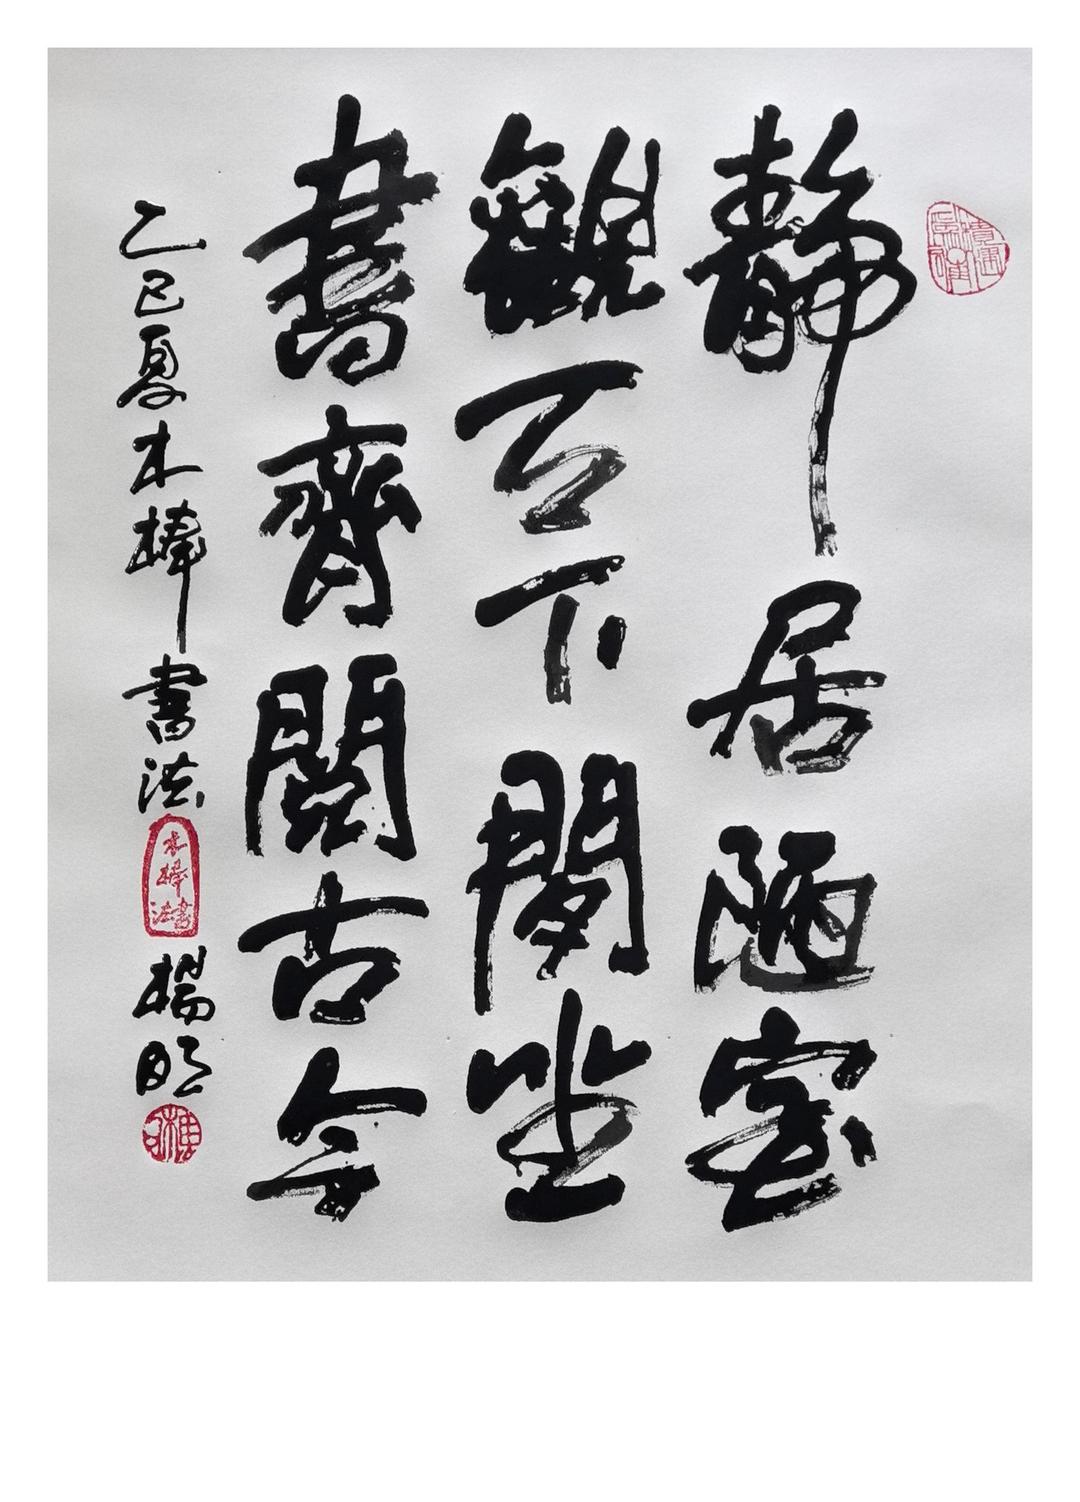 静居陋室
觀天下閒坐
書齋閱古今
乙巳夏木棒書法
木棒書法
楊明